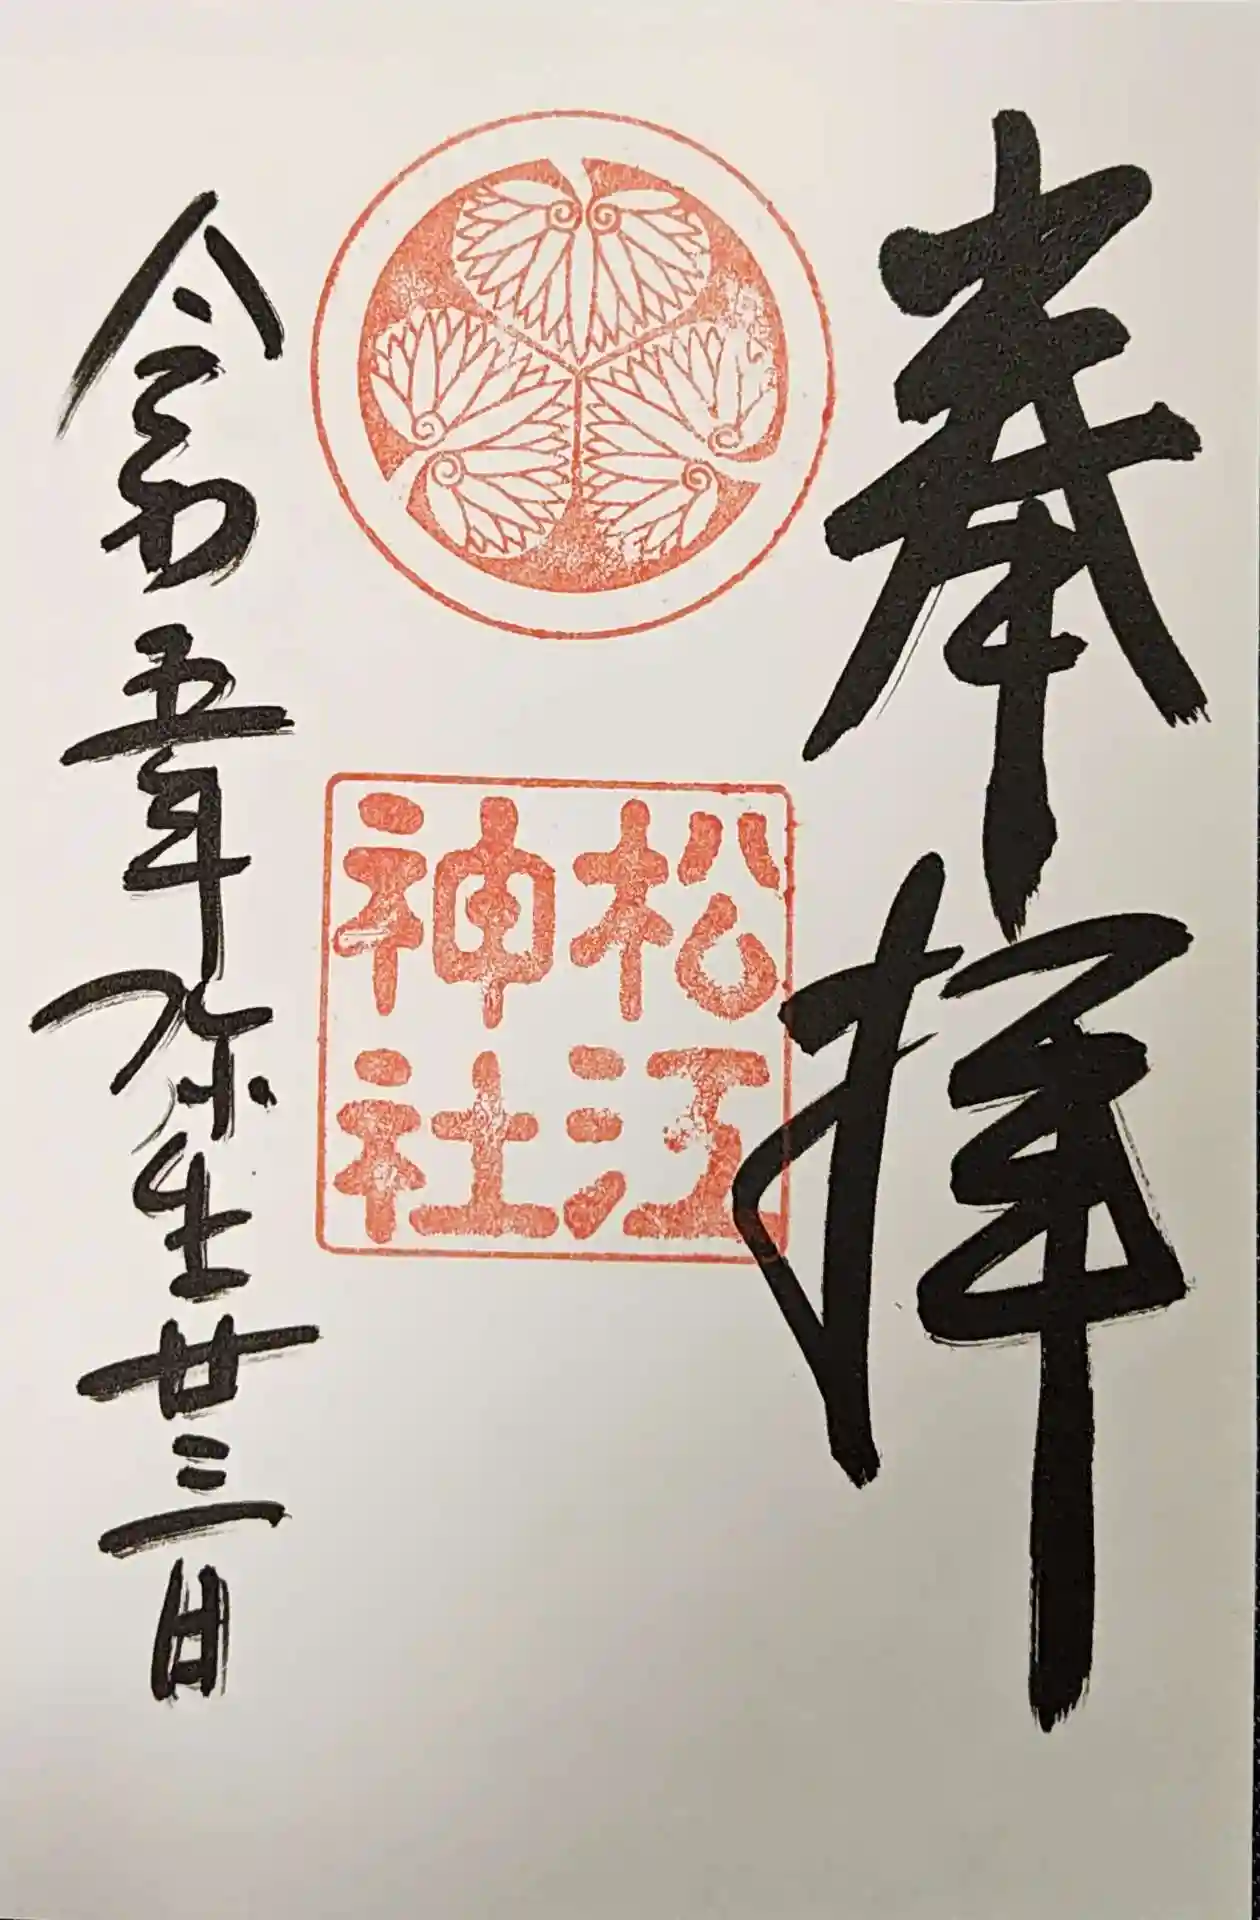 奉拝
松江
神社
令和五年弥生廿三日